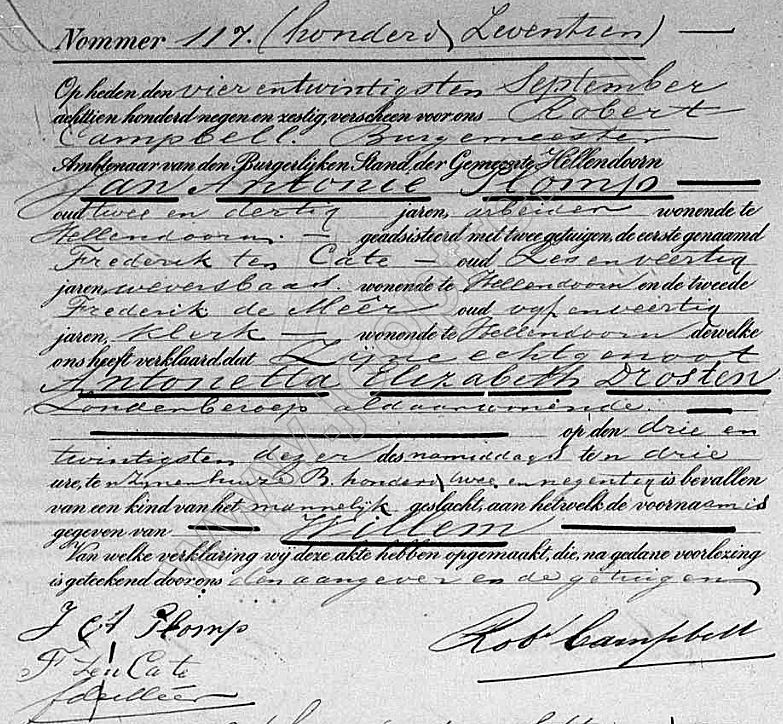 Nommer 117. (honderd Zeventien)
Op heden den vier en twintigsten September
achttien honderd negen en zestig, verscheen voor ons Robert
Campbell. Burgemeester
Ambtenaar van den Burgerlijken Stand, der Gemeente Hellendoorn
Jan Antonie Plomp
oud twee en dertig jaren, arbeider wonende te
Hellendoorn. geadsisteerd met twee getuigen, de eerste genaamd
Frederik ten Cate oud Zes en veertig
jaren, weversbaas. wonende te Hellendoorn en de tweede
Frederik de Meêr oud vyf en veertig
jaren, Klerk wonende te Hellendoorn dewelke
ons heeft verklaard, dat Zijne echtgenoot
Antonetta Elizabeth Drosten
Zonder beroep aldaar wonende.
op den drie en
twintigsten dezer des namiddags ten drie
ure, te zynen huize B. honderd twee en negentig is bevallen
van een kind van het mannelijk geslacht, aan hetwelk de voornaam is
gegeven van Willem
Van welke verklaring wij deze akte hebben opgemaakt, die, na gedane voorlezing
is geteekend door ons den aangever en de getuigen
J A Plomp
Rob Campbell
F ten Cate
f de Meêr